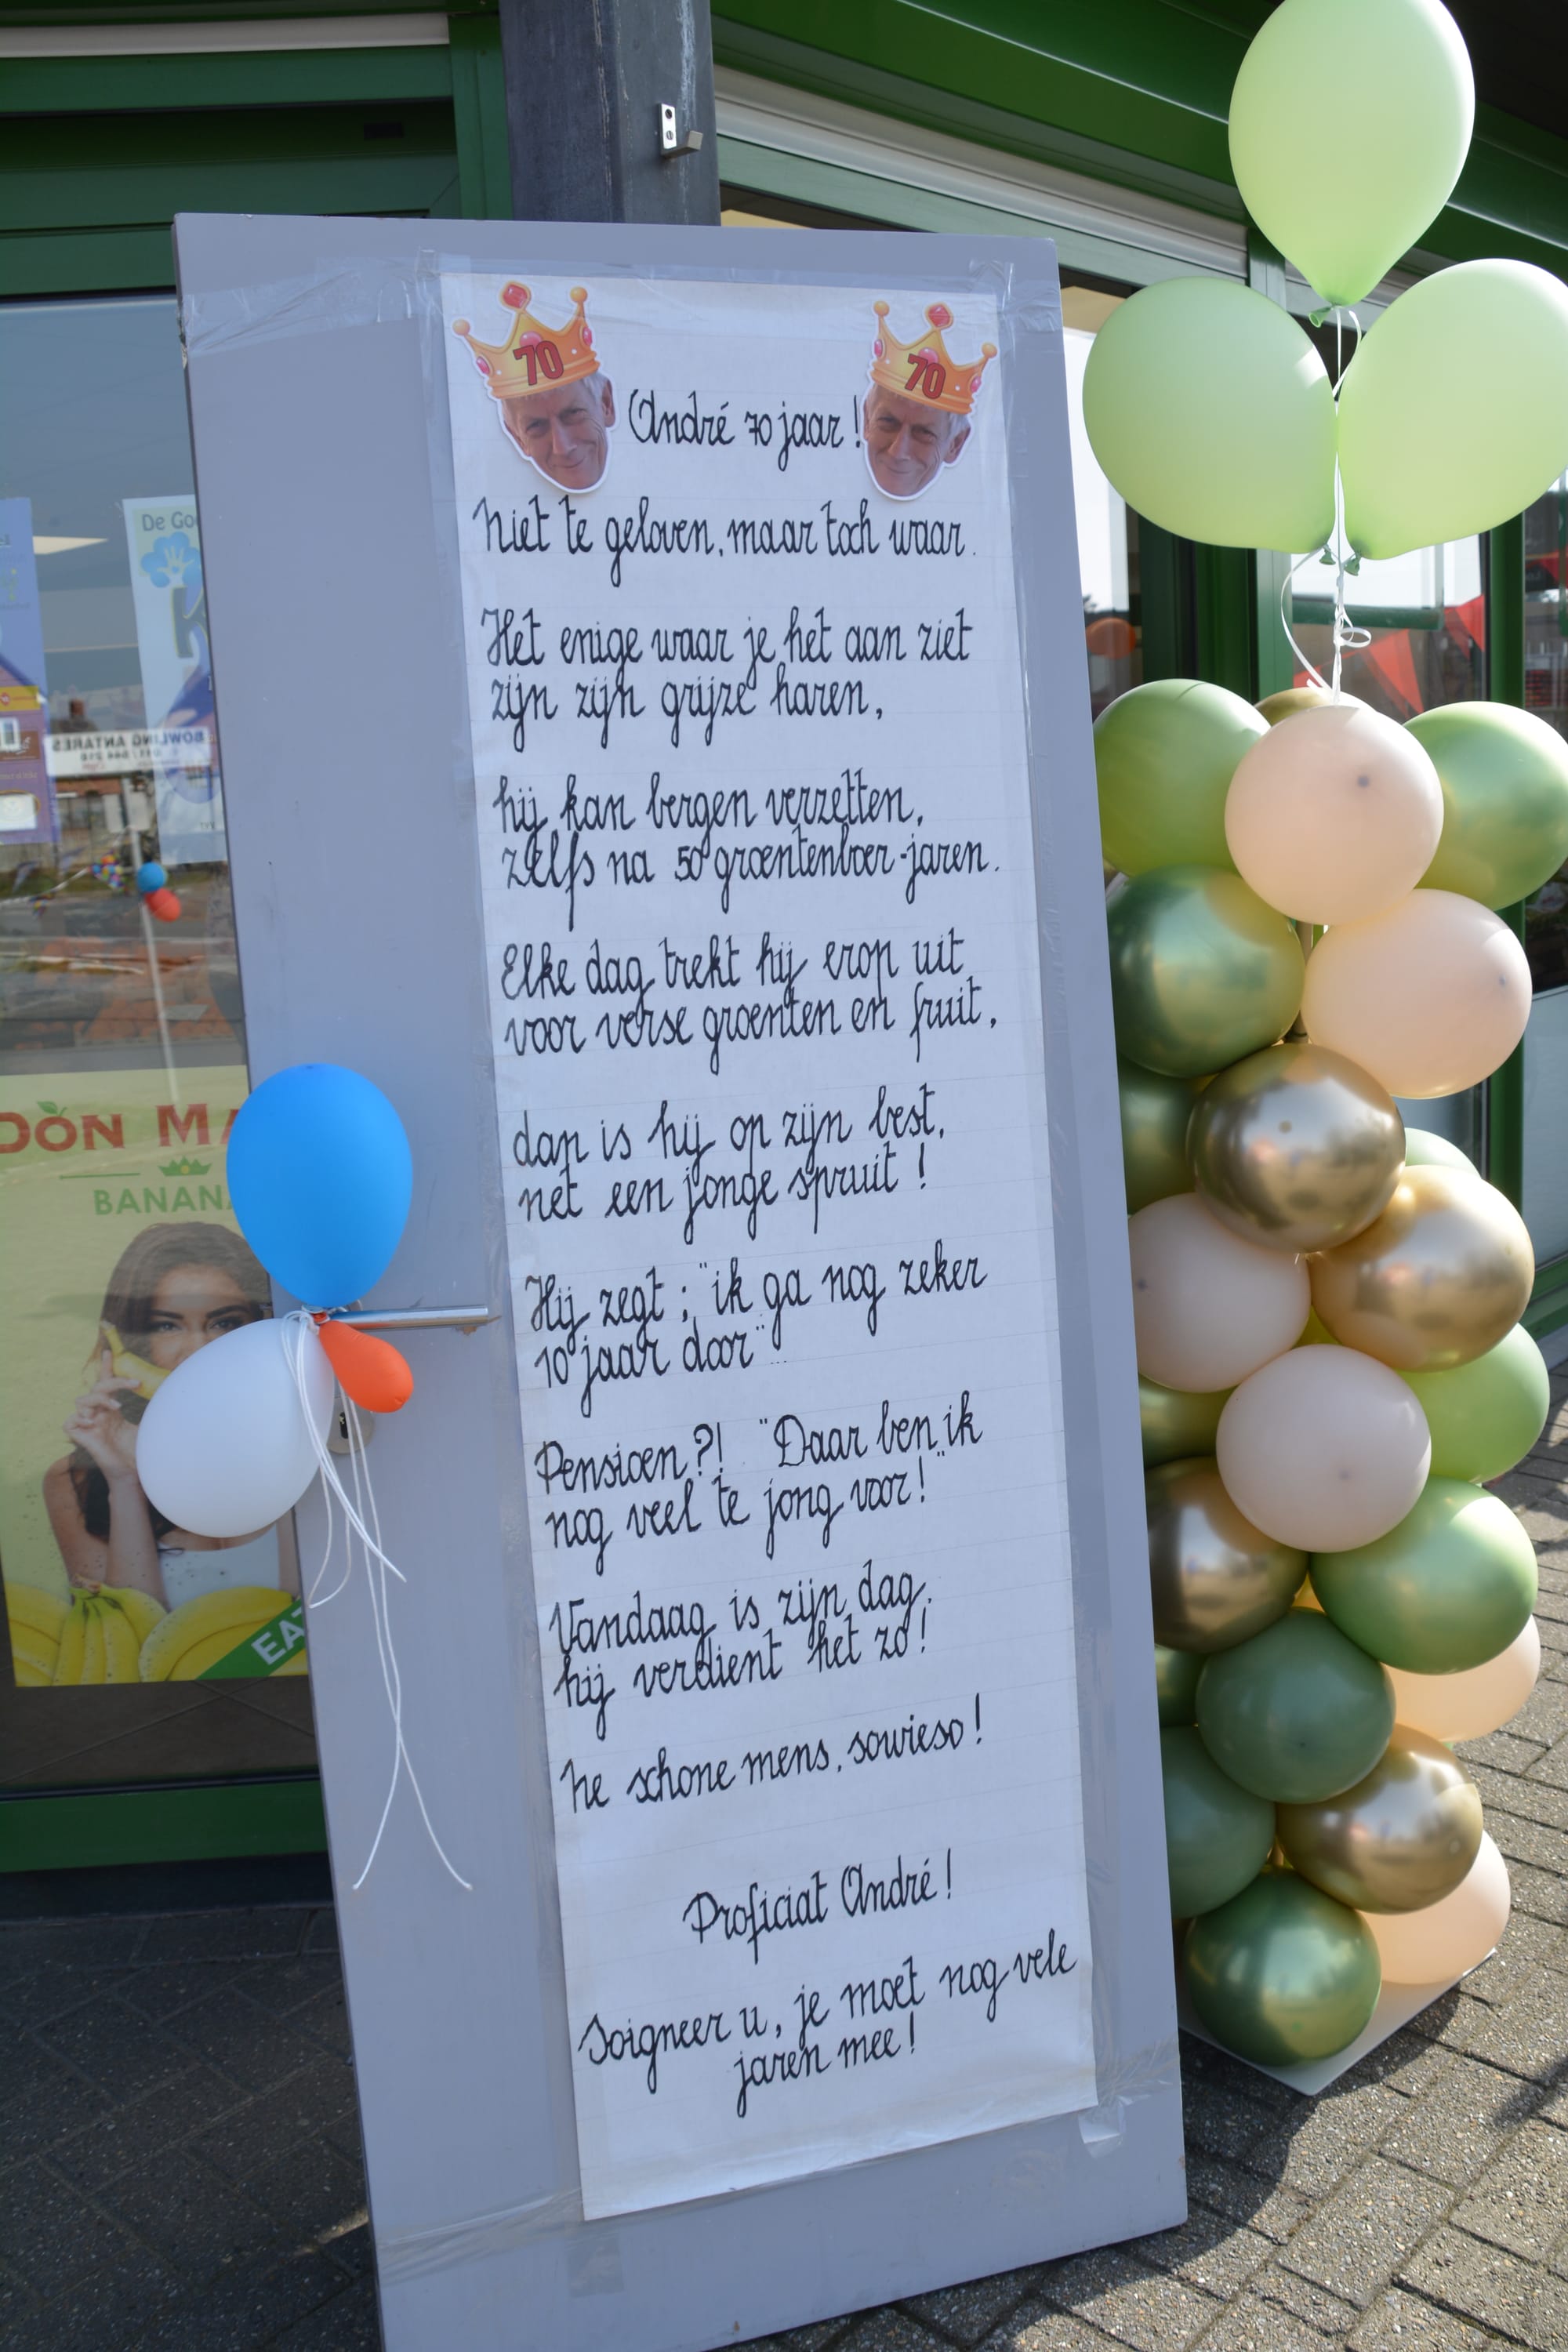 70
70
André 70 jaar!
Niet te geloven, maar toch waar.
Het enige waar je het aan ziet
zijn zijn grijze haren,
hij kan bergen verzetten,
zelfs na 50 groentenboer-jaren.
Elke dag trekt hij erop uit
voor verse groenten en fruit,
dan is hij op zijn best,
net een jonge spruit!
Hij zegt: "ik ga nog zeker
10 jaar door"...
Pensioen?! "Daar ben ik
nog veel te jong voor!"
Vandaag is zijn dag,
hij verdient het zo!
he schone mens, sowieso!
Proficiat André!
Soigneer u, je moet nog vele
jaren mee!
De Go
K
BOWLING ANTARES
DON MA
BANANA
EAT